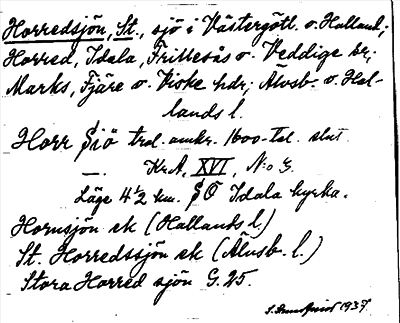 Horredsjön, St., sjö i Västergötl. o. Halland;
Horred, Idala, Frillesås o. Veddige br;
Marks, Fjäre o. Viske hdr; Älvsb. o. Hal-
lands l.
Horr Siö trol. omkr. 1600-tal. slut
— KrA, XVI, N:o 3.
Läge 4 1/2 km. SÖ Idala kyrka.
Hornsjön ek (Hallands l.)
St. Horredssjön ek (Älvsb. l.)
Stora Horred sjön G. 25.
1937.